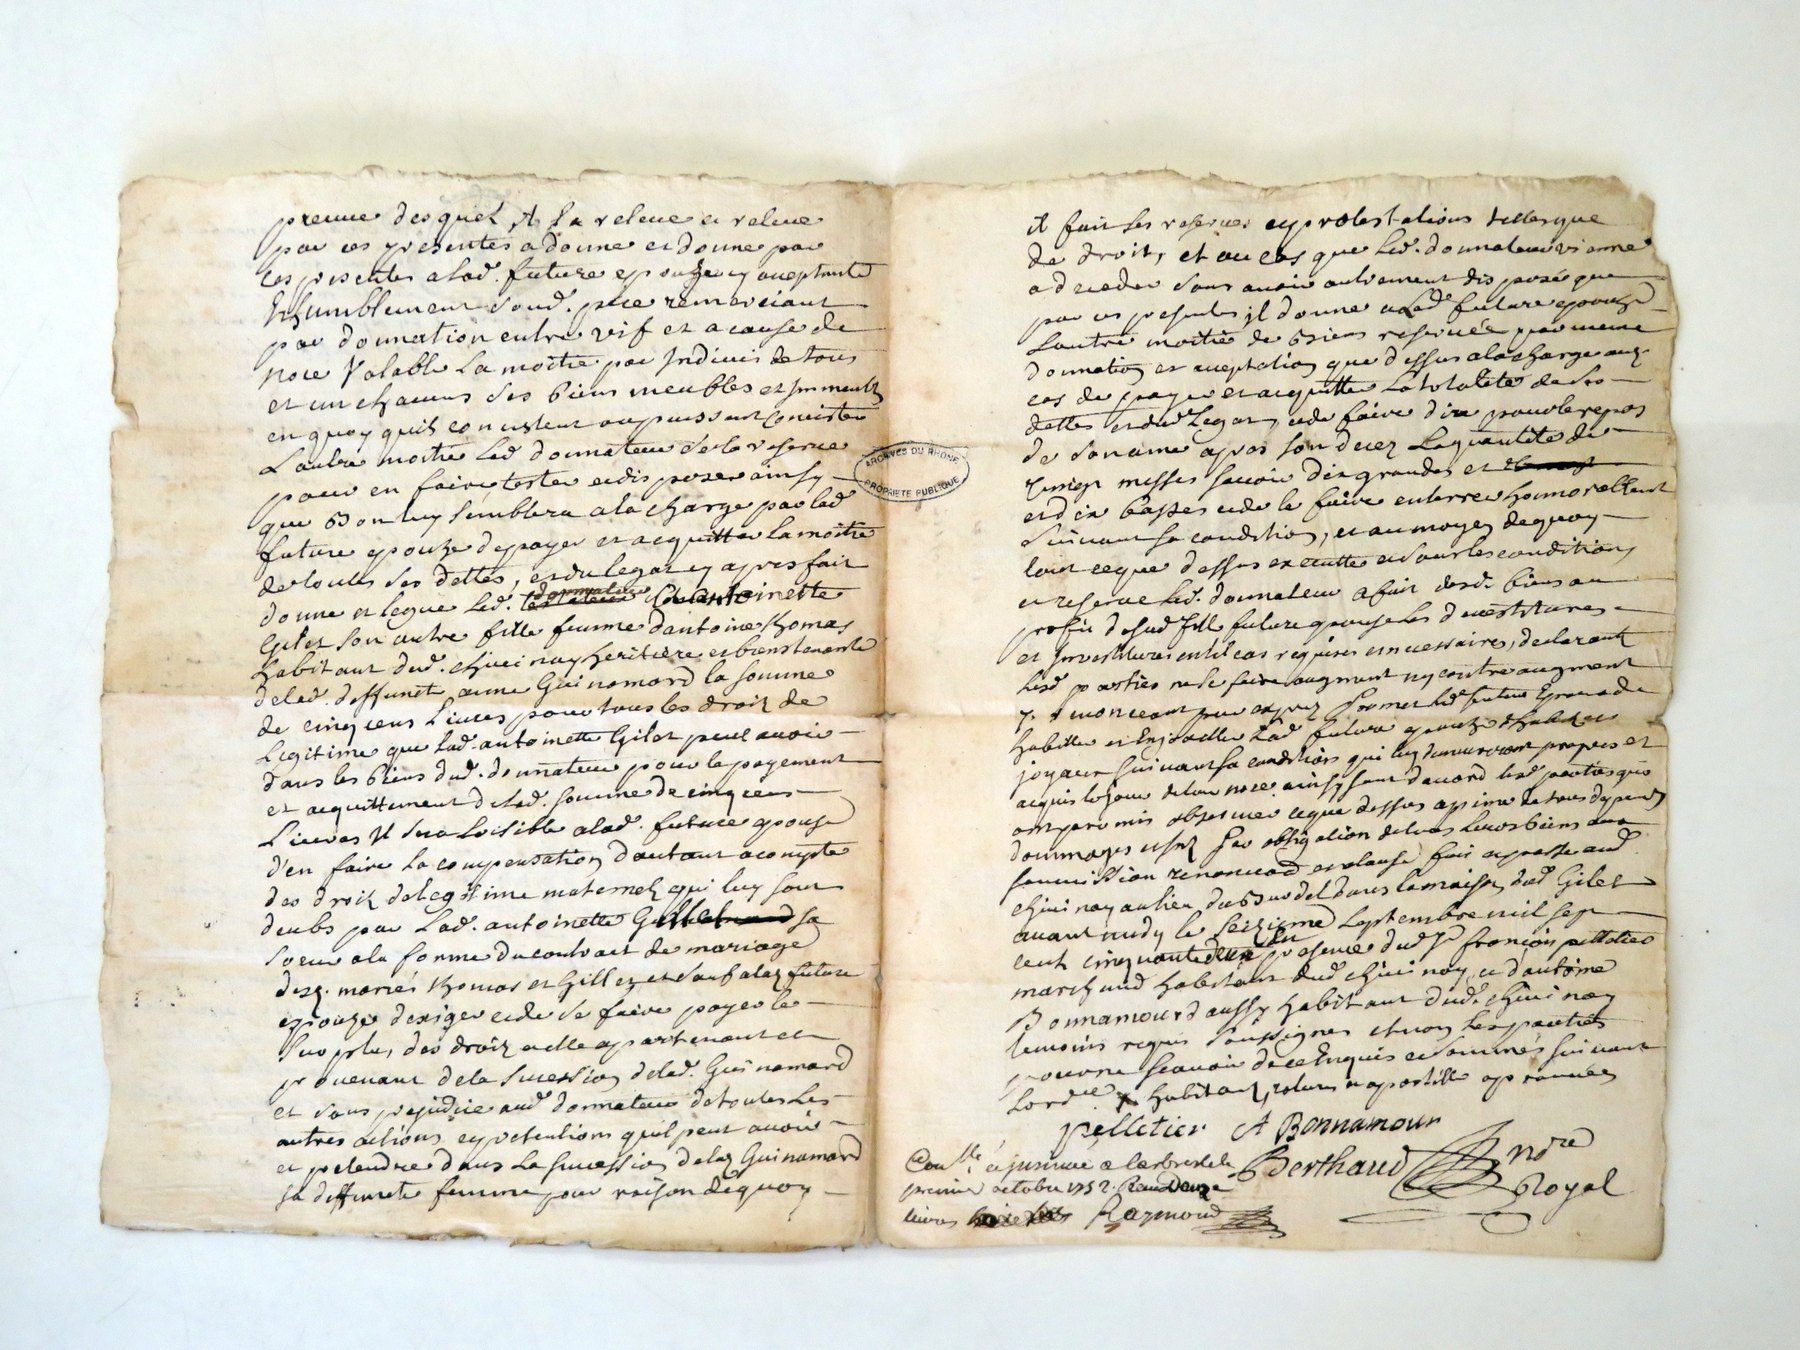 preuue desquels Il la releue et releue
par ces presentes a donne et donne par
ces presentes a lad. future epouze y aceptante
Et humblement sond. pere remerciant
par donnation entre vif et a cause de
noce Valable La moitie par Indiuis de tous
et un chacuns ses biens meubles et Immeubles
en quoy quils consistent ou puissent Consister
Lautre moitie led. donnateur se la reserue
pour en faire tester et disposer ainsy
que Bon luy semblera a la charge par lad
future epouze de payer et acquitter La moitie
de toutes ses dettes, et du legat cy apres fait
donne et legue led. donnateur a antoinette
Gilet son autre fille femme dantoine thomas
habitant dud. chiuinay heritiere et bienstenante
de lad. deffunte anne Guinamard la somme
de cinq cens Liures pour tous les droiz de
Legitime que lad. antoinette Gilet peut auoir
dans les biens dud. donnateur pour le payement
et acquittement de lad. somme de cinq cens
Liures Il sera loisible a lad. future epouse
d'en faire la compensation dautant a compte
des droiz de legitime maternels qui luy sont
deubs par Lad. antoinette Gillet sa
soeur a la forme du contract de mariage
desd. mariés thomas et Gillet et sauf a lad. future
epouze dexiger et de se faire payer le
surplus, des droiz a elle apartenant et
prouenant de la sucession de lad. Guinamard
et sans prejudice aud donnateur de toutes Les
autres actions et pretentions quil peut auoir
et pretendre dans La sucession de lad. Guinamard
sa deffunte femme pour raison de quoy
ARCHIVES DU RHONE
PROPRIETE PUBLIQUE
il fait les reserues et protestations telles que
de droit, et au cas que led. donnateur vienne
a deceder sans auoir autrement disposé que
par ces presentes il donne a lad. future epouze
Lautre moitie de biens reseruée par meme
donnation et aceptation que dessus a la charge aud.
cas de payer et acquitter La totalité de ses
dettes et dud. Legat, et de faire dire pour le repos
de son ame apres son decez La quantite de
vingt messes sauoir dix grandes et
et dix basses et de le faire enterrer honnorablement
suiuant sa condition, et au moyen de quoy
tout ce que dessus executte et sous les conditions
et reserue led. donnateur a fait desd. biens au
profit de sad. fille future epouse les deuestitures
et Inuestitures en tel cas requises et necessaires, declarant
lesd. parties ne se faire augment ny contre augment
y renonceant par expres Promet led. futur Epoux de
habiller et Enjoailler Lad. future epouze dhabits et
joyaux suiuant sa condition qui luy demeureront propres et
acquis le jour de leur noce ainsy sont dacord lesd. parties quis
ont promis obseruer ce que dessus a peine de tous depens
dommages et Int. Par obligation de tous leurs biens
soumission renonciation et clause fait et passe aud.
chiuinay au lieu du Bardel dans la maison dud. Gilet
auant midy le seizieme septembre mil sept
cent cinquante deux En presence de Sr. françois pelletier
marchand habitant dud. chiuinay, et dantoine
Bonnamour daussy habitant dud. chiuinay
temoins requis soussignes et non les parties
pour ne scauoir de ce Enquis et sommés suiuant
Lordce. habitant, releue en apostille aprouuée
pelletier A Bonnamour
Berthaud Nore Royal
Conlle. et jnsinué a Larbresle le
premier octobre 1752. Receu douze
liures Raymond